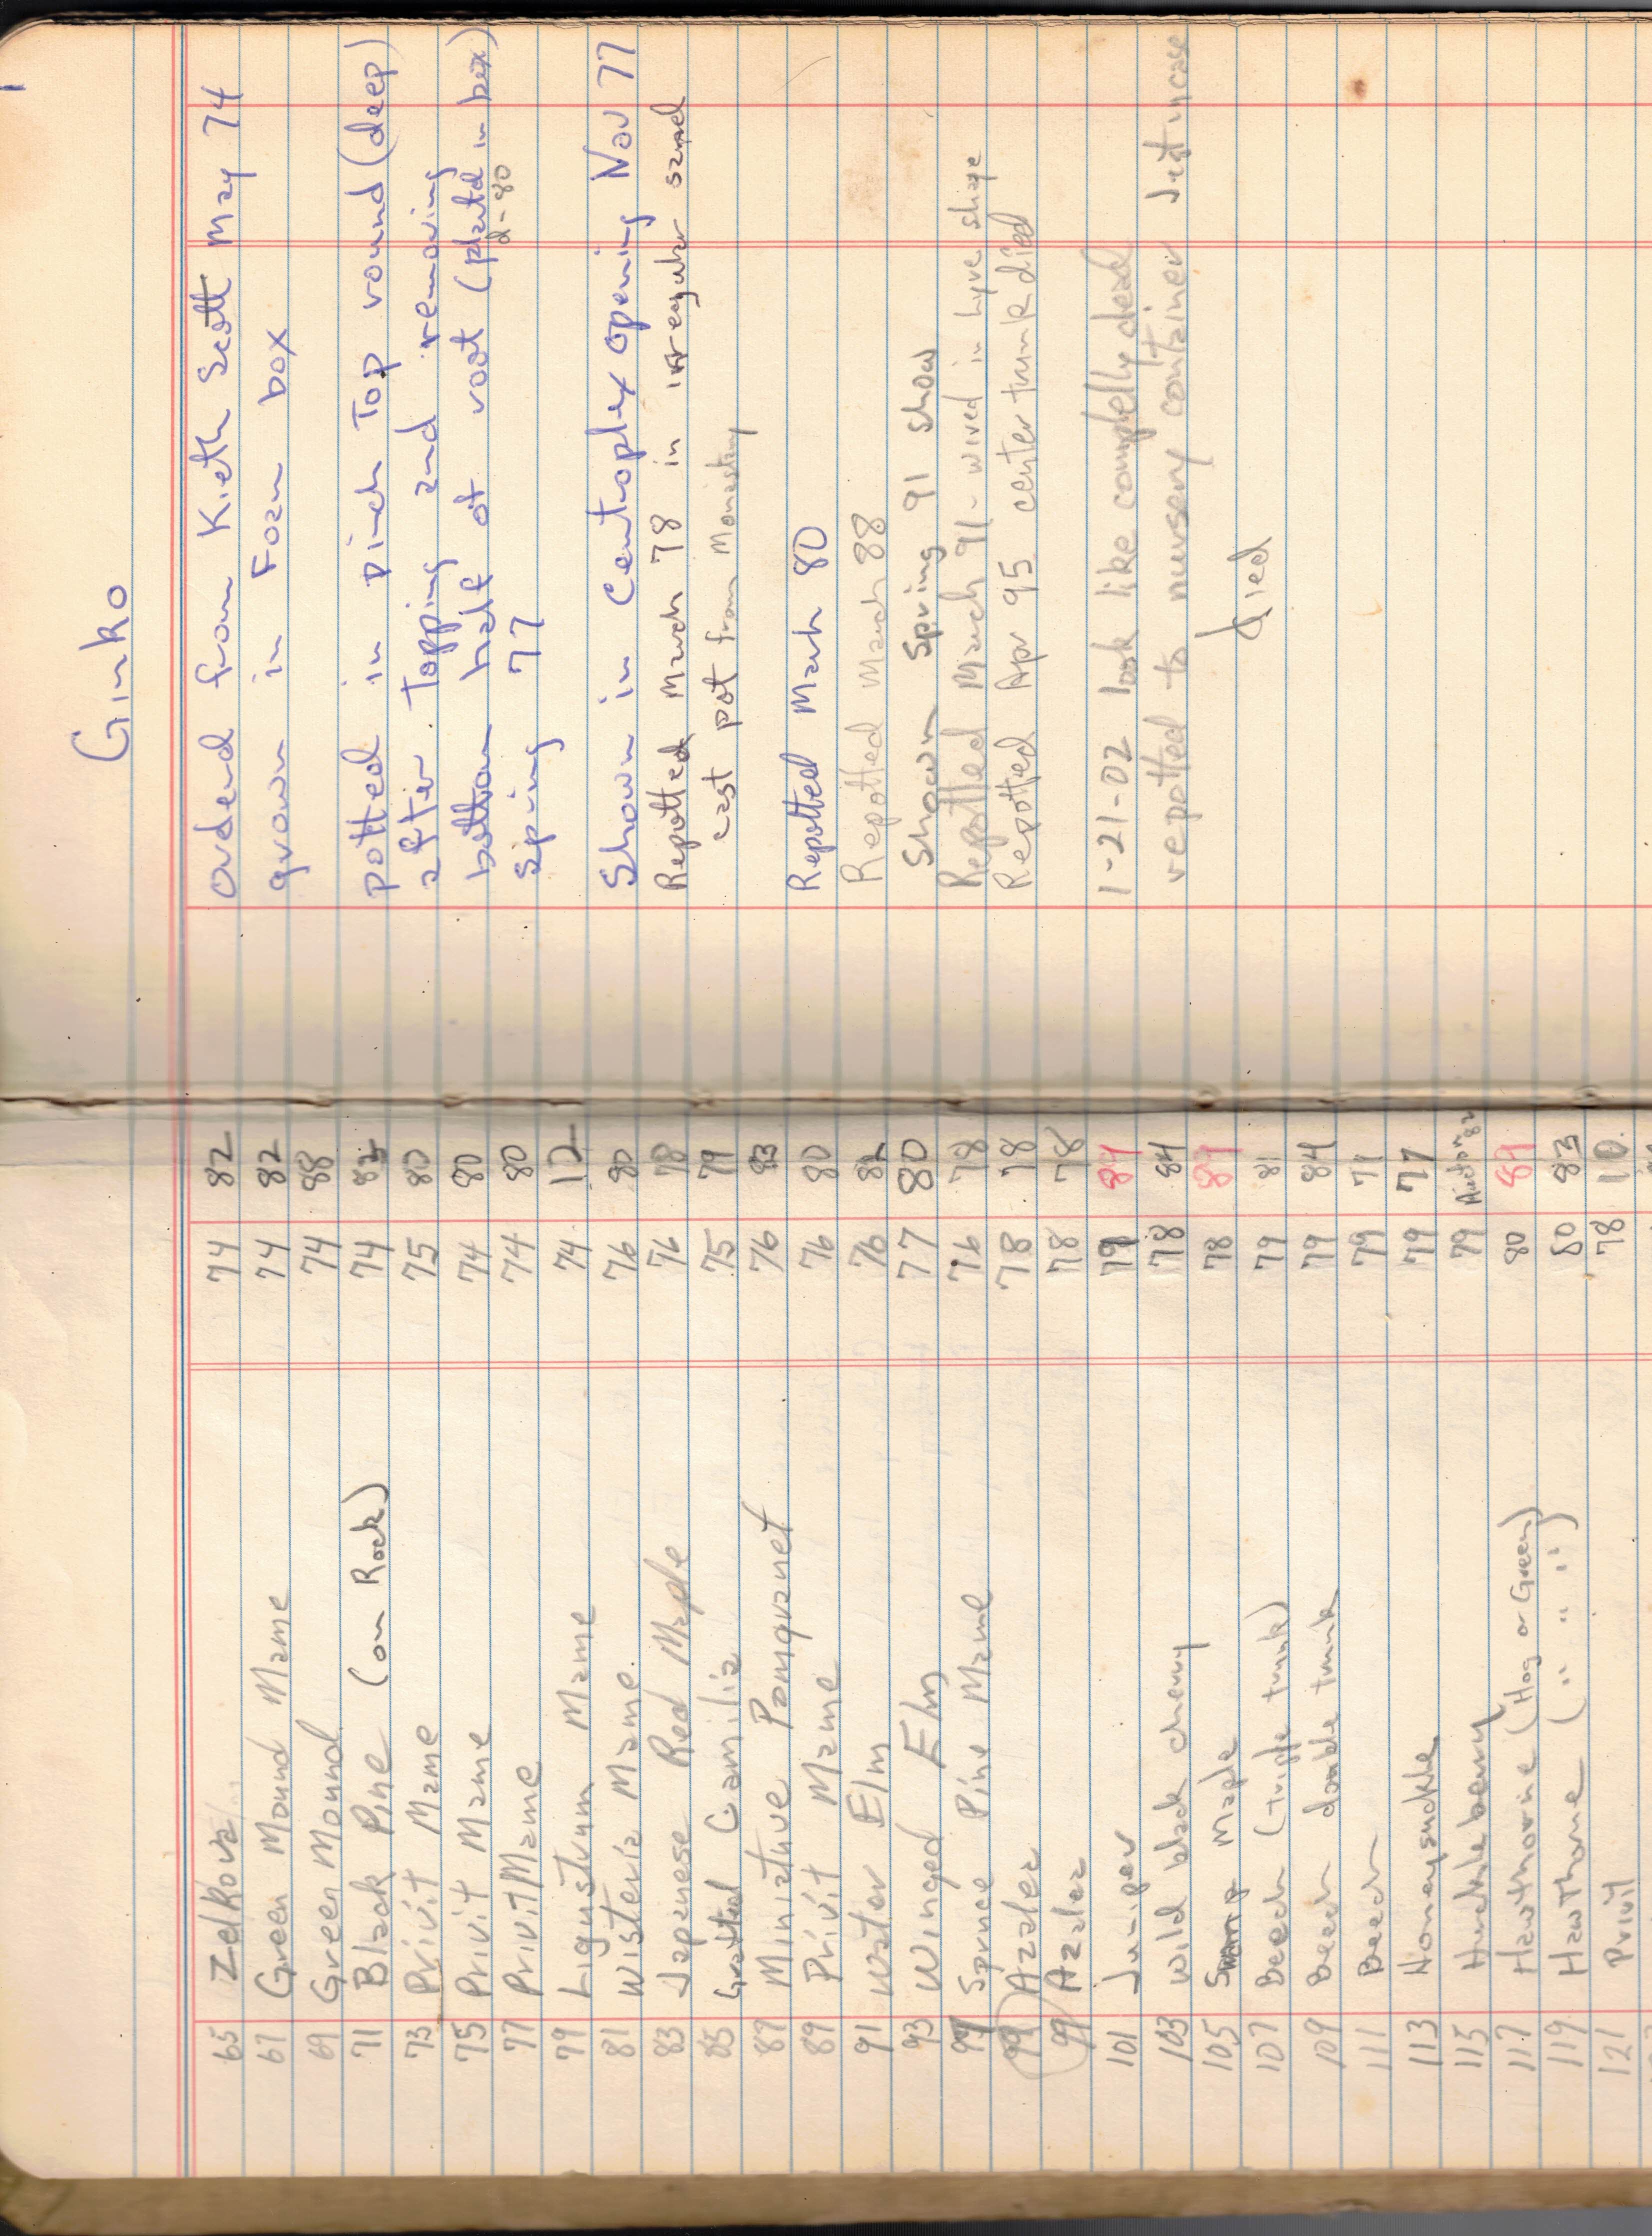 65 Zelkova 74 82
67 Green Mound Mame 74 82
69 Green Mound 74 88
71 Black Pine (on Rock) 74 82
73 Privit Mame 75 80
75 Privit Mame 74 80
77 Privit Mame 74 80
79 Ligustrum Mame 74 12
81 Wisteria Mame. 76 80
83 Japanese Red Maple 76 78
85 Grafted Camilia 75 79
87 Miniature Pomgranet 76 83
89 Privit Mame 76 80
91 Water Elm 76 82
93 Winged Elm 77 80
97 Spruce Pine Mame 76 78
99 Azalea 78 78
99 Azalea 78 78
101 Juniper 79 89
103 Wild black cherry 78 84
105 Swamp Maple 78 89
107 Beech (triple trunk) 79 81
109 Beech double trunk 79 84
111 Beech 79 71
113 Honeysuckle 79 77
115 Huckleberry 79 Auction 82
117 Hawthorne (Hog or Green) 80 89
119 Hawthorne (" " ") 80 83
121 Privit 78 10.
1
Ginko
Orderd from Kieth Scott May 74
grown in Foam box
potted in pinch Top round (deep)
after Topping and removing
bottom half of root (plantd in box)
d-80
Spring 77
Shown in Centroplex opening Nov 77
Repotted March 78 in irregular sand
cast pot from Monastary
Repotted March 80
Repotted March 88
Shown Spring 91 show
Repotted March 91 - wired in Lyre shape
Repotted Apr 95 center trunk died
1-21-02 look like completly dead
repotted to nursery container Just in case
died